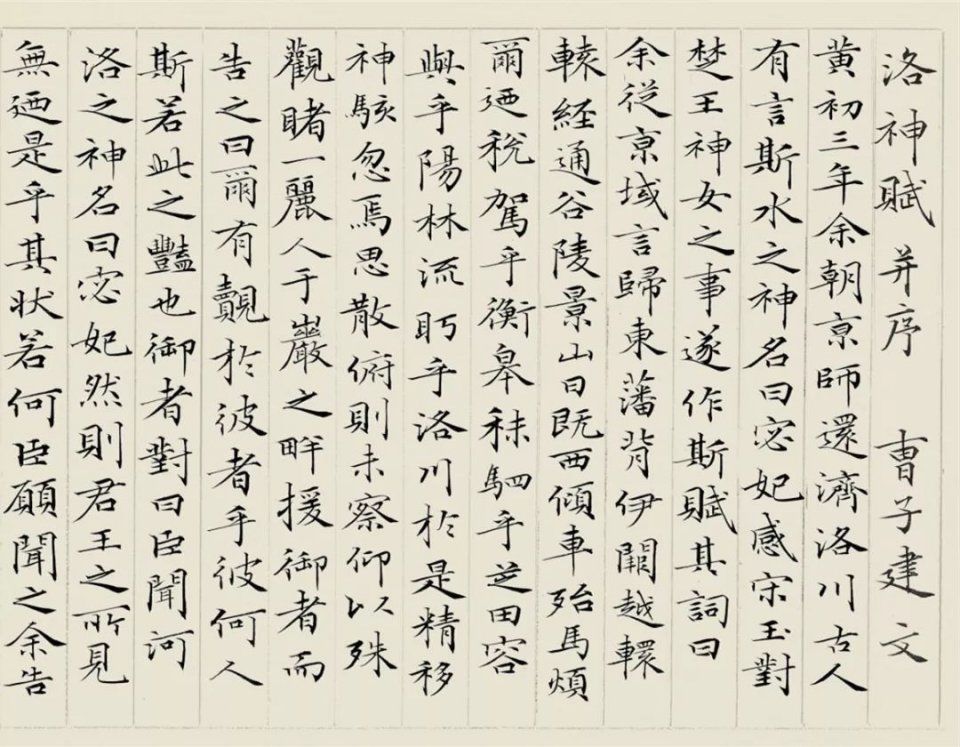 洛神賦并序 曹子建文
黄初三年余朝亰師還濟洛川古人
有言斯水之神名曰宓妃感宋玉對
楚王神女之事遂作斯賦其詞曰
余從亰域言歸東藩背伊闕越轘
轅経通谷陵景山日既西傾車殆馬煩
爾迺稅駕乎衡皋秣駟乎芝田容
與乎陽林流眄乎洛川於是精移
神駭忽焉思散俯則未察仰以殊
觀睹一麗人于巖之畔援御者而
告之曰爾有覿於彼者乎彼何人
斯若此之豔也御者對曰臣聞河
洛之神名曰宓妃然則君王之所見
無迺是乎其状若何臣願聞之余告